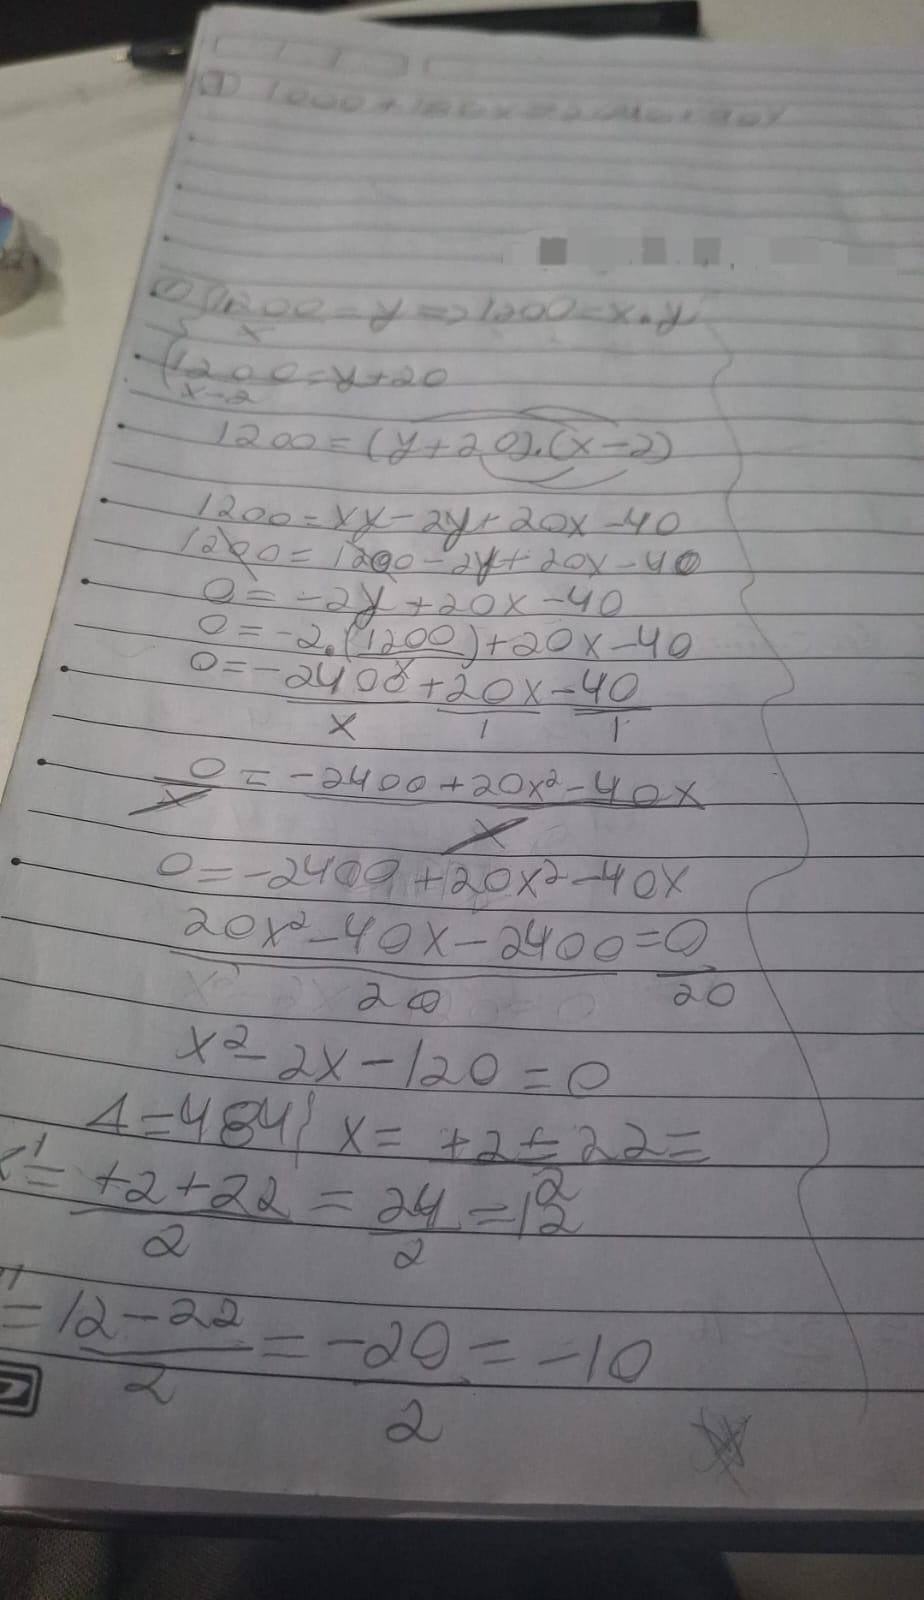 1) {1200/x = y => 1200 = x.y
{1200/x-2 = y+20
1200 = (y+20).(x-2)
1200 = xy - 2y + 20x - 40
1200 = 1200 - 2y + 20x - 40
0 = -2y + 20x - 40
0 = -2.(1200/x) + 20x - 40
0 = -2400/x + 20x/1 - 40/1
0/x = -2400 + 20x² - 40x/x
0 = -2400 + 20x² - 40x
20x² - 40x - 2400/20 = 0/20
x² - 2x - 120 = 0
Δ = 484 } x = +2 ± 22/2 =
x' = +2+22/2 = 24/2 = 12
= 12-22/2 = -20/2 = -10